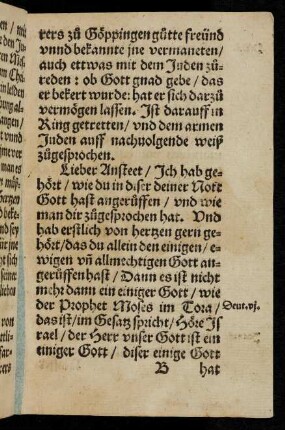 rers zů Göppingen gůtte freünd
vnnd bekannte jne vermaneten/
auch ettwas mit dem Juden zů-
reden: ob Gott gnad gebe/das
er bekert wurde: hat er sich darzů
vermögen lassen. Ist darauff in
Ring getretten/vnd dem armen
Juden auff nachuolgende weiß
zůgesprochen.
Lieber Ansteet/Ich hab ge-
hört/wie du in diser deiner Nott
Gott hast angerüffen/vnd wie
man dir zůgesprochen hat. Vnd
hab erstlich von hertzen gern ge-
hört/das du allein den einigen/e-
wigen vñ allmechtigen Gott an-
gerüffen hast/Dann es ist nicht
mehr dann ein einiger Gott/wie
der Prophet Moses im Tora/
Deut. vj.
das ist/im Gesatz spricht/Höre Is
rael/der Herr vnser Gott ist ein
einiger Gott/diser einige Gott
B hat